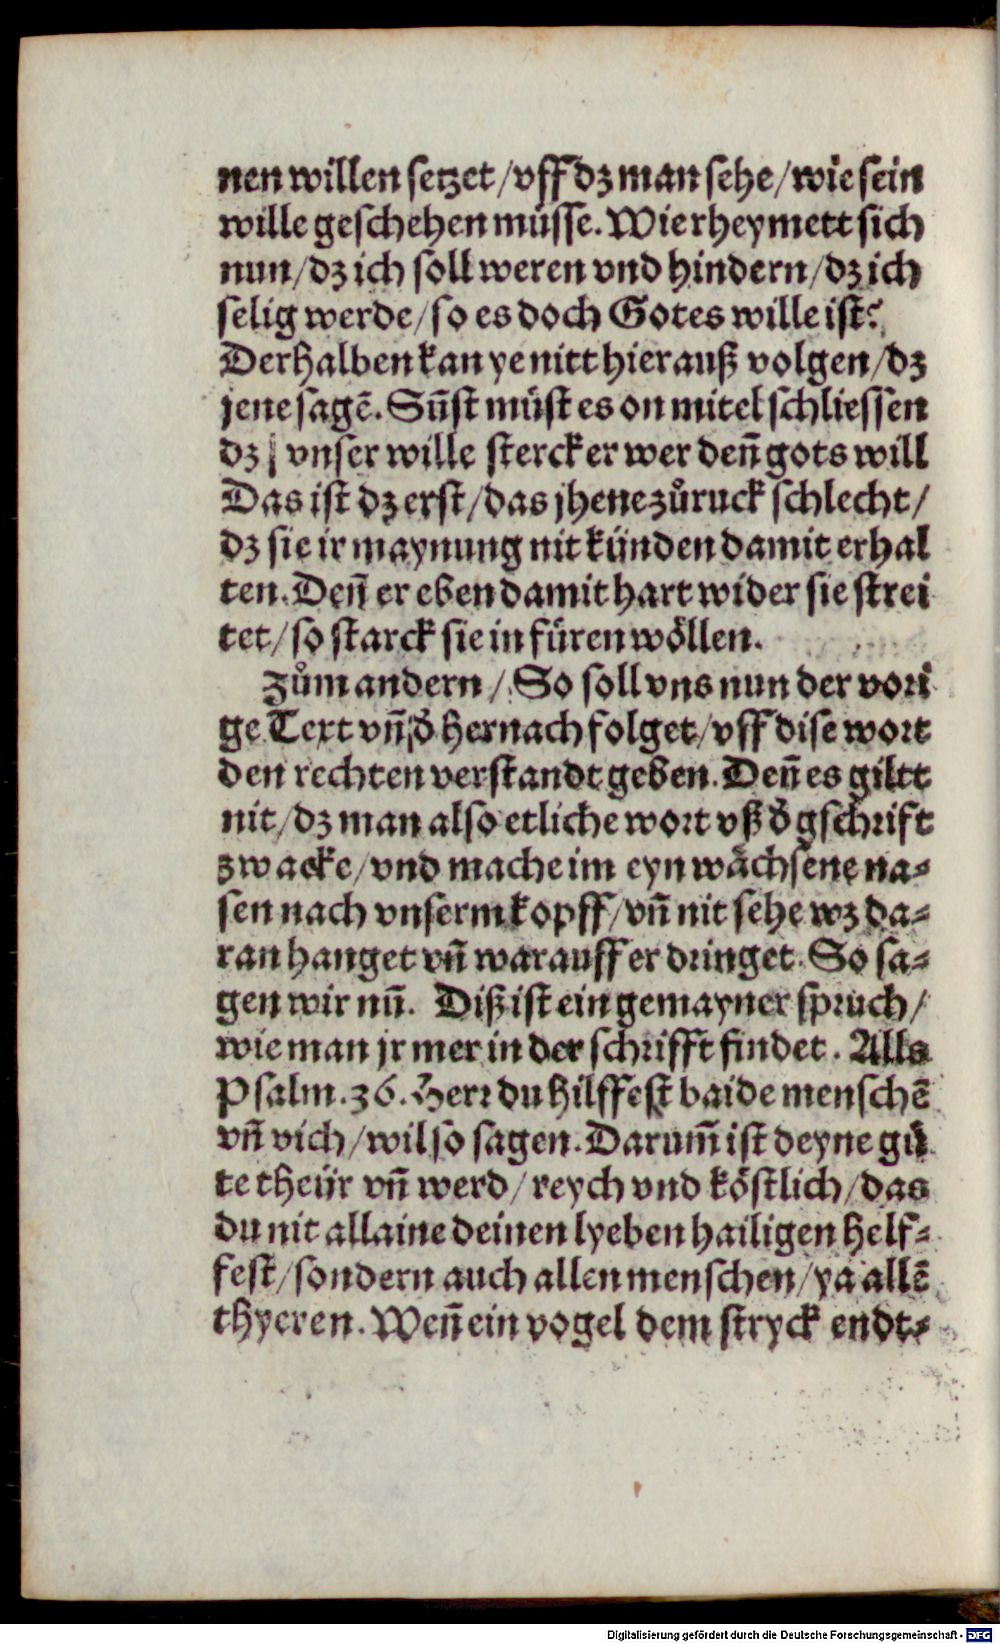 nen willen setzet/vff dz man sehe/wie sein
wille geschehen müsse. Wie rheymett sich
nun/dz ich soll weren vnd hindern/dz ich
selig werde/so es doch Gotes wille ist?
Derhalben kan ye nitt hierauß volgen/dz
jene sagē. Sūst müst es on mitel schliessen
dz vnser wille stercker wer deñ gots will
Das ist dz erst/das jhene zůruck schlecht/
dz sie ir maynung nit künden damit erhal
ten. Deñ er eben damit hart wider sie strei
tet/so starck sie in füren wöllen.
Zům andern/. So soll vns nun der vori
ge Text vñ d̕ hernach folget/vff dise wort
den rechten verstandt geben. Deñ es giltt
nit/dz man also etliche wort vß d̕ gschrift
zwacke/vnd mache im eyn wächsene na-
sen nach vnserm kopff/vñ nit sehe wz da-
ran hanget vñ warauff er dringet. So sa-
gen wir nū. Diß ist ein gemayner spruch/
wie man jr mer in der schrifft findet. Alls
Psalm.36. Herr du hilffest baide menschē
vñ vich/wil so sagen. Darum̄ ist deyne gü
te theür vñ werd/reych vnd köstlich/das
du nit allaine deinen lyeben hailigen helf-
fest/sondern auch allen menschen/ya allē
thyeren. Weñ ein vogel dem stryck endt-
Digitalisierung gefördert durch die Deutsche Forschungsgemeinschaft - DFG